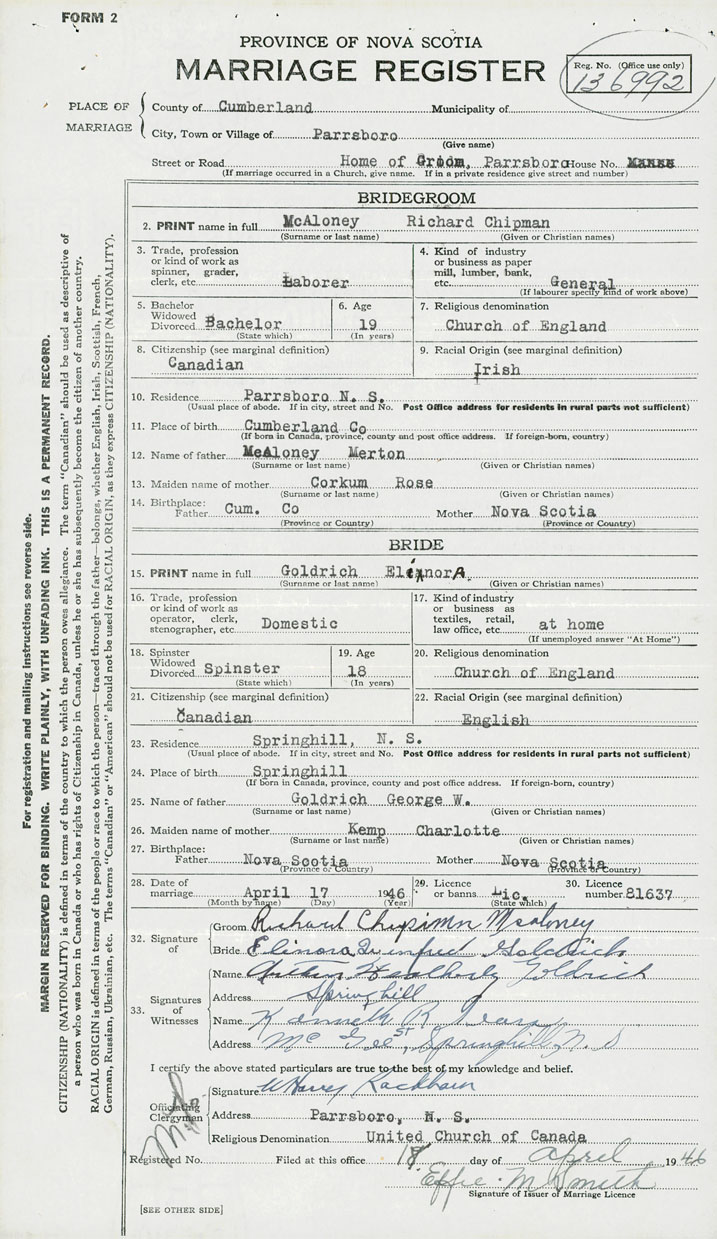 FORM 2
PROVINCE OF NOVA SCOTIA
MARRIAGE REGISTER
Reg. No. (Office use only)
136992
PLACE OF MARRIAGE
County of Cumberland Municipality of
City, Town or Village of Parrsboro
(Give name)
Street or Road Home of Groom, Parrsboro House No.
(If marriage occurred in a Church, give name. If in a private residence give street and number)
BRIDEGROOM
2. PRINT name in full McAloney Richard Chipman
(Surname or last name) (Given or Christian names)
3. Trade, profession or kind of work as spinner, grader, clerk, etc. Laborer
4. Kind of industry or business as paper mill, lumber, bank, etc. General
(If labourer specify kind of work above)
5. Bachelor Widowed Divorced Bachelor
(State which)
6. Age 19
(In years)
7. Religious denomination
Church of England
8. Citizenship (see marginal definition)
Canadian
9. Racial Origin (see marginal definition)
Irish
10. Residence Parrsboro N. S.
(Usual place of abode. If in city, street and No. Post Office address for residents in rural parts not sufficient)
11. Place of birth Cumberland Co
(If born in Canada, province, county and post office address. If foreign-born, country)
12. Name of father McAloney Merton
(Surname or last name) (Given or Christian names)
13. Maiden name of mother Corkum Rose
(Surname or last name) (Given or Christian names)
14. Birthplace: Father Cum. Co Mother Nova Scotia
(Province or Country) (Province or Country)
BRIDE
15. PRINT name in full Goldrich Elinora
(Surname or last name) (Given or Christian names)
16. Trade, profession or kind of work as operator, clerk, stenographer, etc. Domestic
17. Kind of industry or business as textiles, retail, law office, etc. at home
(If unemployed answer "At Home")
18. Spinster Widowed Divorced Spinster
(State which)
19. Age 18
(In years)
20. Religious denomination
Church of England
21. Citizenship (see marginal definition)
Canadian
22. Racial Origin (see marginal definition)
English
23. Residence Springhill, N. S.
(Usual place of abode. If in city, street and No. Post Office address for residents in rural parts not sufficient)
24. Place of birth Springhill
(If born in Canada, province, county and post office address. If foreign-born, country)
25. Name of father Goldrich George W.
(Surname or last name) (Given or Christian names)
26. Maiden name of mother Kemp Charlotte
(Surname or last name) (Given or Christian names)
27. Birthplace: Father Nova Scotia Mother Nova Scotia
(Province or Country) (Province or Country)
28. Date of marriage April 17 1946
(Month by name) (Day) (Year)
29. Licence or banns Lic.
(State which)
30. Licence number 81637
32. Signature of
Groom Richard Chipman McAloney
Bride Elinora Winifred Goldrich
33. Signatures of Witnesses
Name Weatherly Goldrich
Address Springhill
Name Kenneth R
Address McGee St, Springhill, N. S
I certify the above stated particulars are true to the best of my knowledge and belief.
Officiating Clergyman
Signature W Harvey Rackham
Address Parrsboro, N. S.
Religious Denomination United Church of Canada
Registered No. Filed at this office 18 day of April 1946
Effie M Smith
Signature of Issuer of Marriage Licence
[SEE OTHER SIDE]
For registration and mailing instructions see reverse side.
MARGIN RESERVED FOR BINDING. WRITE PLAINLY, WITH UNFADING INK. THIS IS A PERMANENT RECORD.
CITIZENSHIP (NATIONALITY) is defined in terms of the country to which the person owes allegiance. The term "Canadian" should be used as descriptive of
a person who was born in Canada or who has rights of Citizenship in Canada, unless he or she has subsequently become the citizen of another country.
RACIAL ORIGIN is defined in terms of the people or race to which the person—traced through the father—belongs, whether English, Irish, Scottish, French,
German, Russian, Ukrainian, etc. The terms "Canadian" or "American" should not be used for RACIAL ORIGIN, as they express CITIZENSHIP (NATIONALITY).